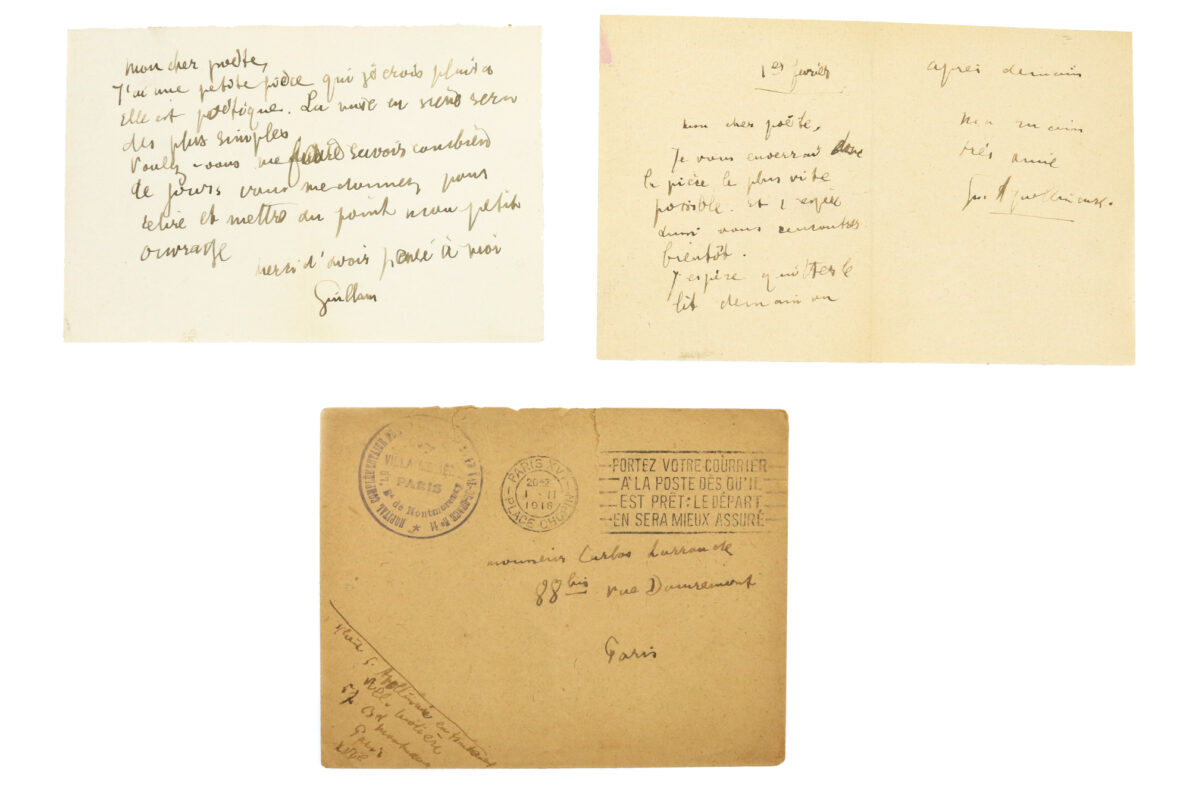 mon cher poète,
J'ai une petite pièce qui je crois plaira
Elle est poétique. La mise en scène sera
des plus simples
Voulez-vous me faire savoir combien
de jours vous me donnez pour
relire et mettre au point mon petit
ouvrage
merci d'avoir pensé à moi
Guillaum
1er février
mon cher poète,
Je vous enverrai
la pièce le plus vite
possible. Et j'espère
aussi vous rencontrer
bientôt.
J'espère quitter le
lit demain ou
après demain
ma main
très amie
Gui Apollinaire.
HOPITAL COMPLÉMENTAIRE DU VAL-DE-GRACE No 11
VILLA MOLIÈRE
PARIS
Bd de Montmorency
PARIS XVI
1 - II
1918
PLACE CHOPIN
PORTEZ VOTRE COURRIER
A LA POSTE DÈS QU'IL
EST PRÊT: LE DÉPART
EN SERA MIEUX ASSURÉ
monsieur Carlos Larronde
88 bis rue Damrémont
Paris
G. Apollinaire
Villa Molière
57 Bd Montmorency
Paris
XVIe